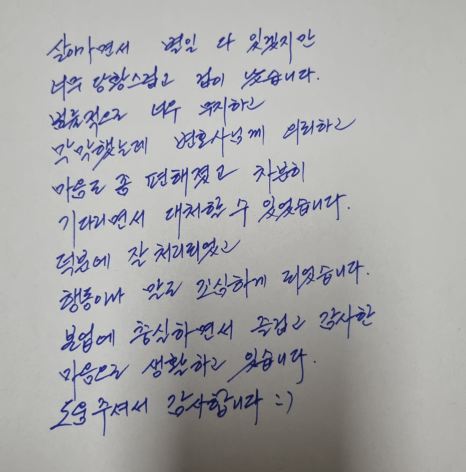 살아가면서 별일 다 있겠지만
너무 당황스럽고 겁이 났습니다.
법률적으로 너무 무지하고
막막했는데 변호사님께 의뢰하고
마음도 좀 편해졌고 차분히
기다리면서 대처할 수 있었습니다.
덕분에 잘 처리되었고
행동이나 말도 조심하게 되었습니다.
본업에 충실하면서 즐겁고 감사한
마음으로 생활하고 있습니다.
도움주셔서 감사합니다 :)